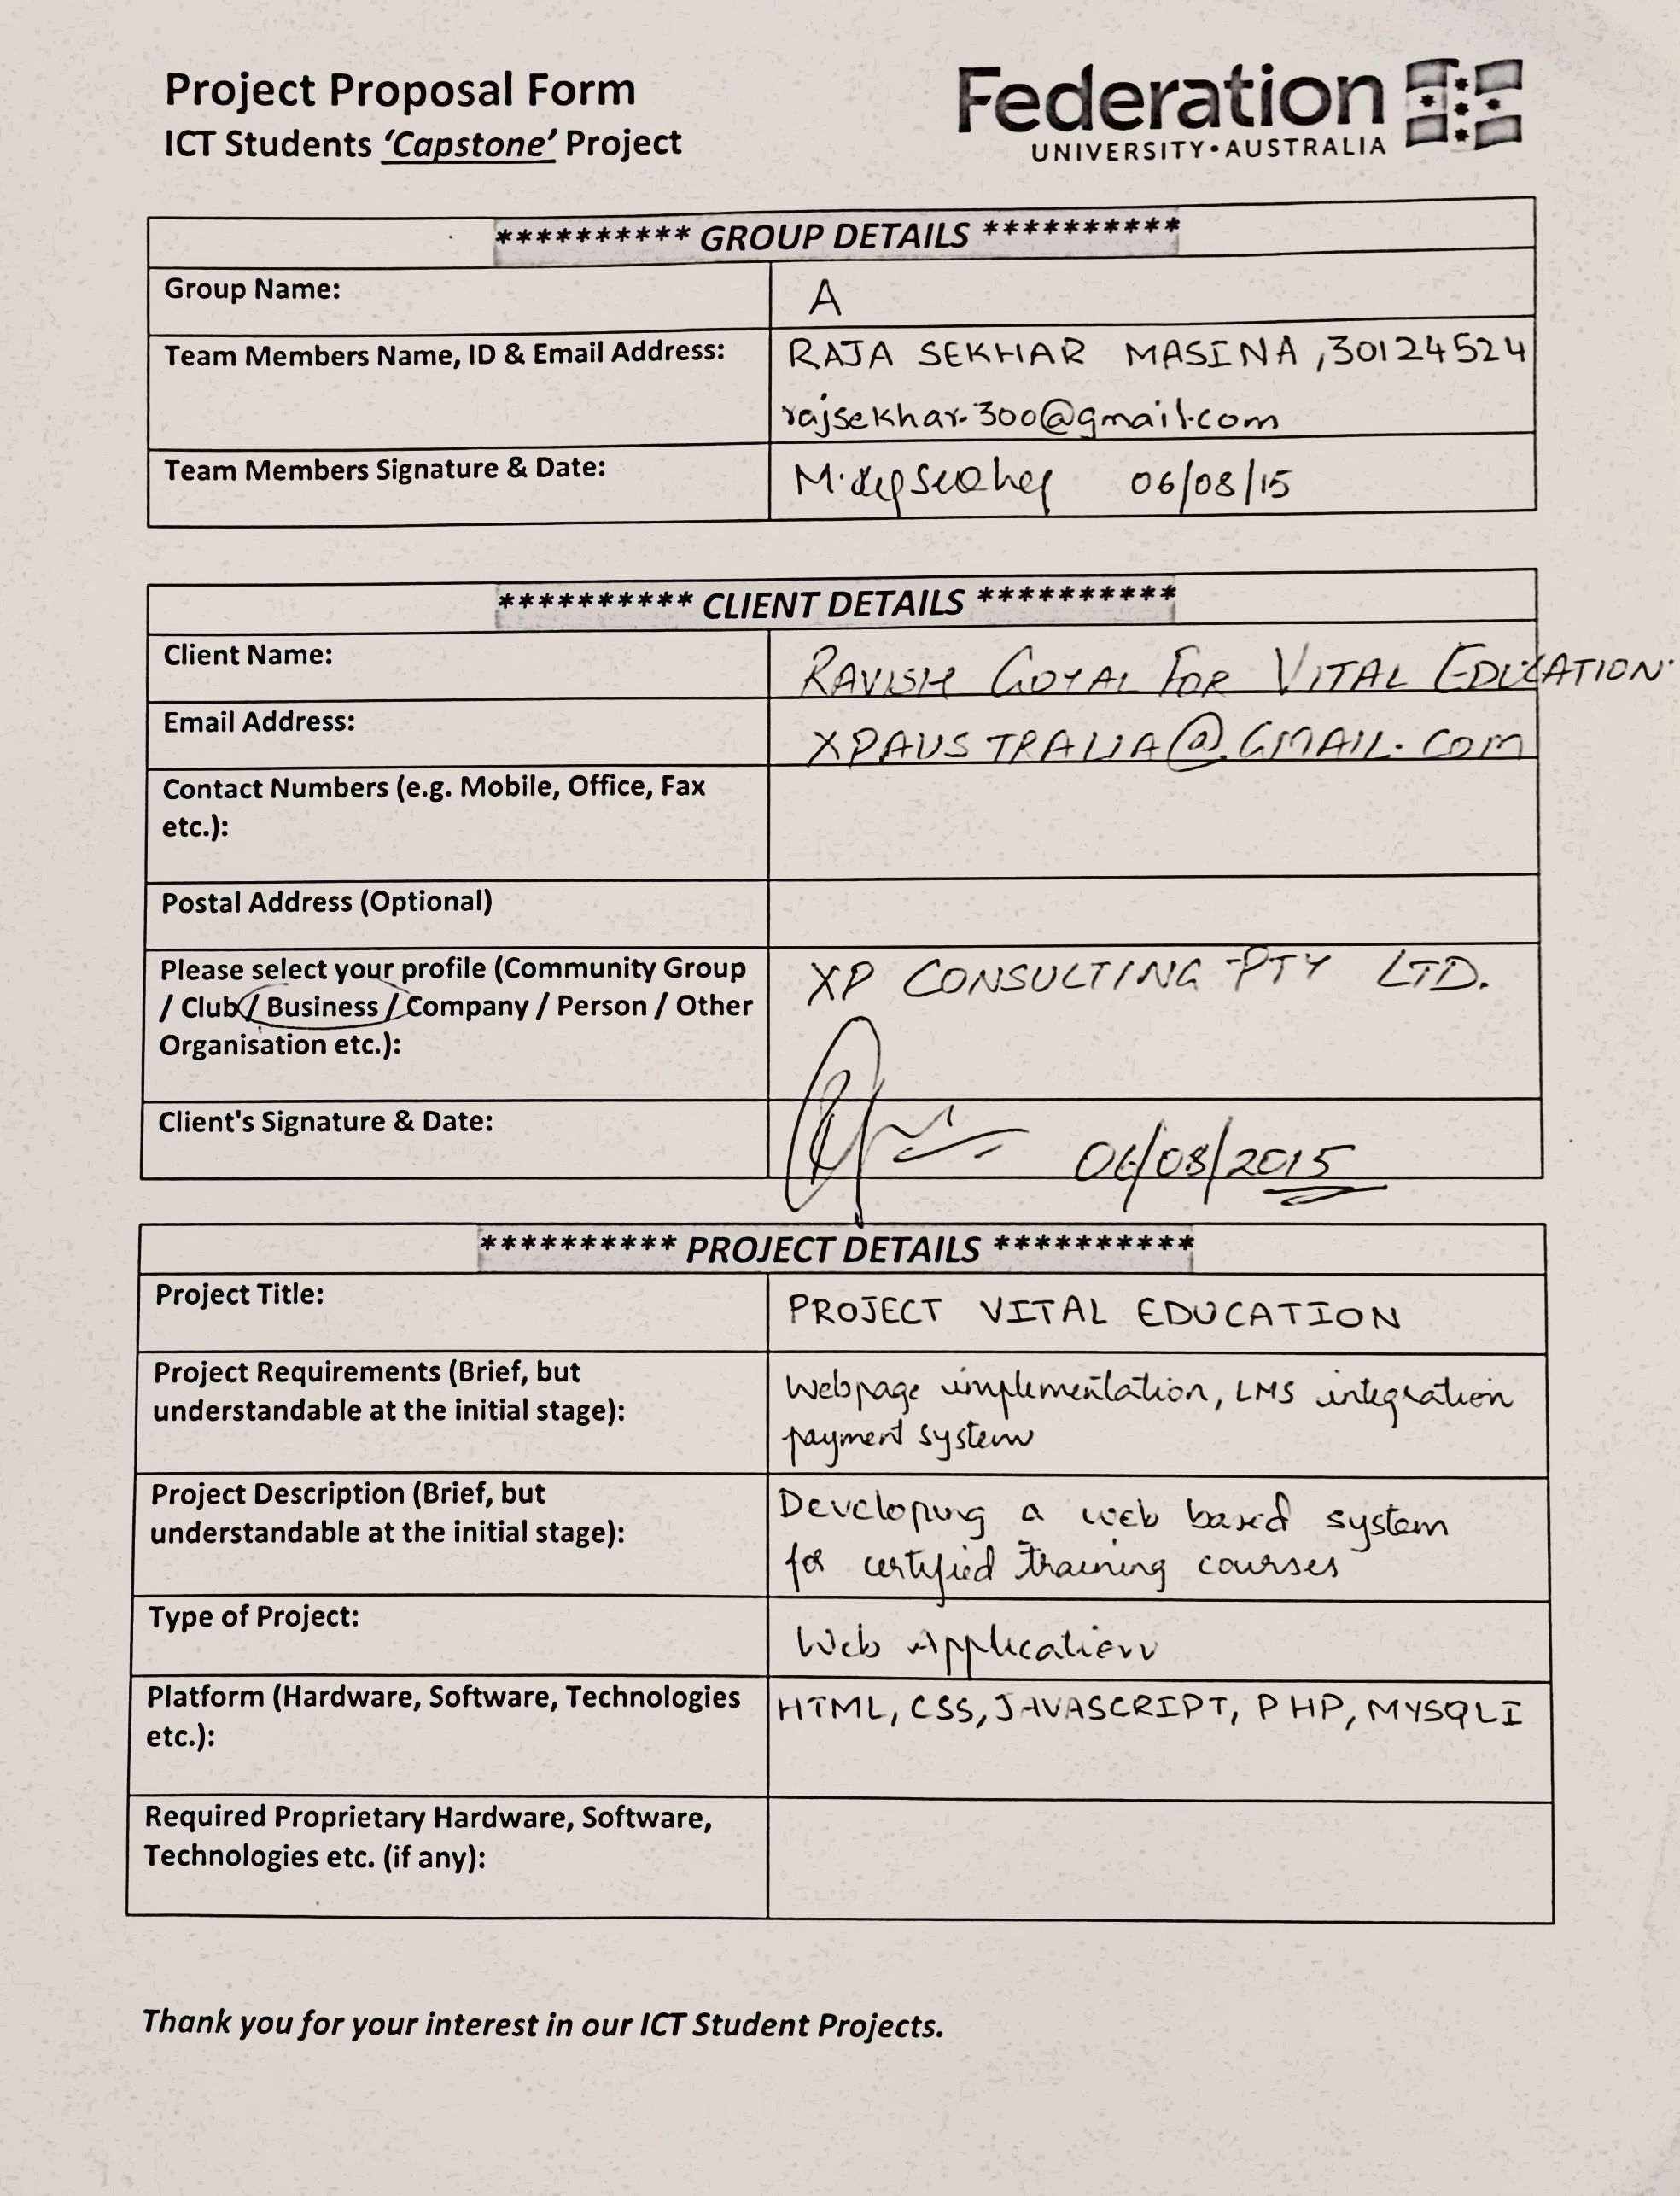 Project Proposal Form
ICT Students 'Capstone' Project
Federation
UNIVERSITY • AUSTRALIA
********** GROUP DETAILS **********
Group Name:
A
Team Members Name, ID & Email Address:
RAJA SEKHAR MASINA ,30124524
rajsekhar.300@gmail.com
Team Members Signature & Date:
06/08/15
********** CLIENT DETAILS **********
Client Name:
RAVISH GOYAL FOR VITAL EDUCATION.
Email Address:
XPAUSTRALIA@GMAIL.COM
Contact Numbers (e.g. Mobile, Office, Fax
etc.):
Postal Address (Optional)
Please select your profile (Community Group
/ Club / Business / Company / Person / Other
Organisation etc.):
XP CONSULTING PTY LTD.
Client's Signature & Date:
06/08/2015
********** PROJECT DETAILS **********
Project Title:
PROJECT VITAL EDUCATION
Project Requirements (Brief, but
understandable at the initial stage):
Webpage implementation, LMS integration
payment system
Project Description (Brief, but
understandable at the initial stage):
Developing a web based system
for certified training courses
Type of Project:
Web Application
Platform (Hardware, Software, Technologies
etc.):
HTML, CSS, JAVASCRIPT, PHP, MYSQLI
Required Proprietary Hardware, Software,
Technologies etc. (if any):
Thank you for your interest in our ICT Student Projects.